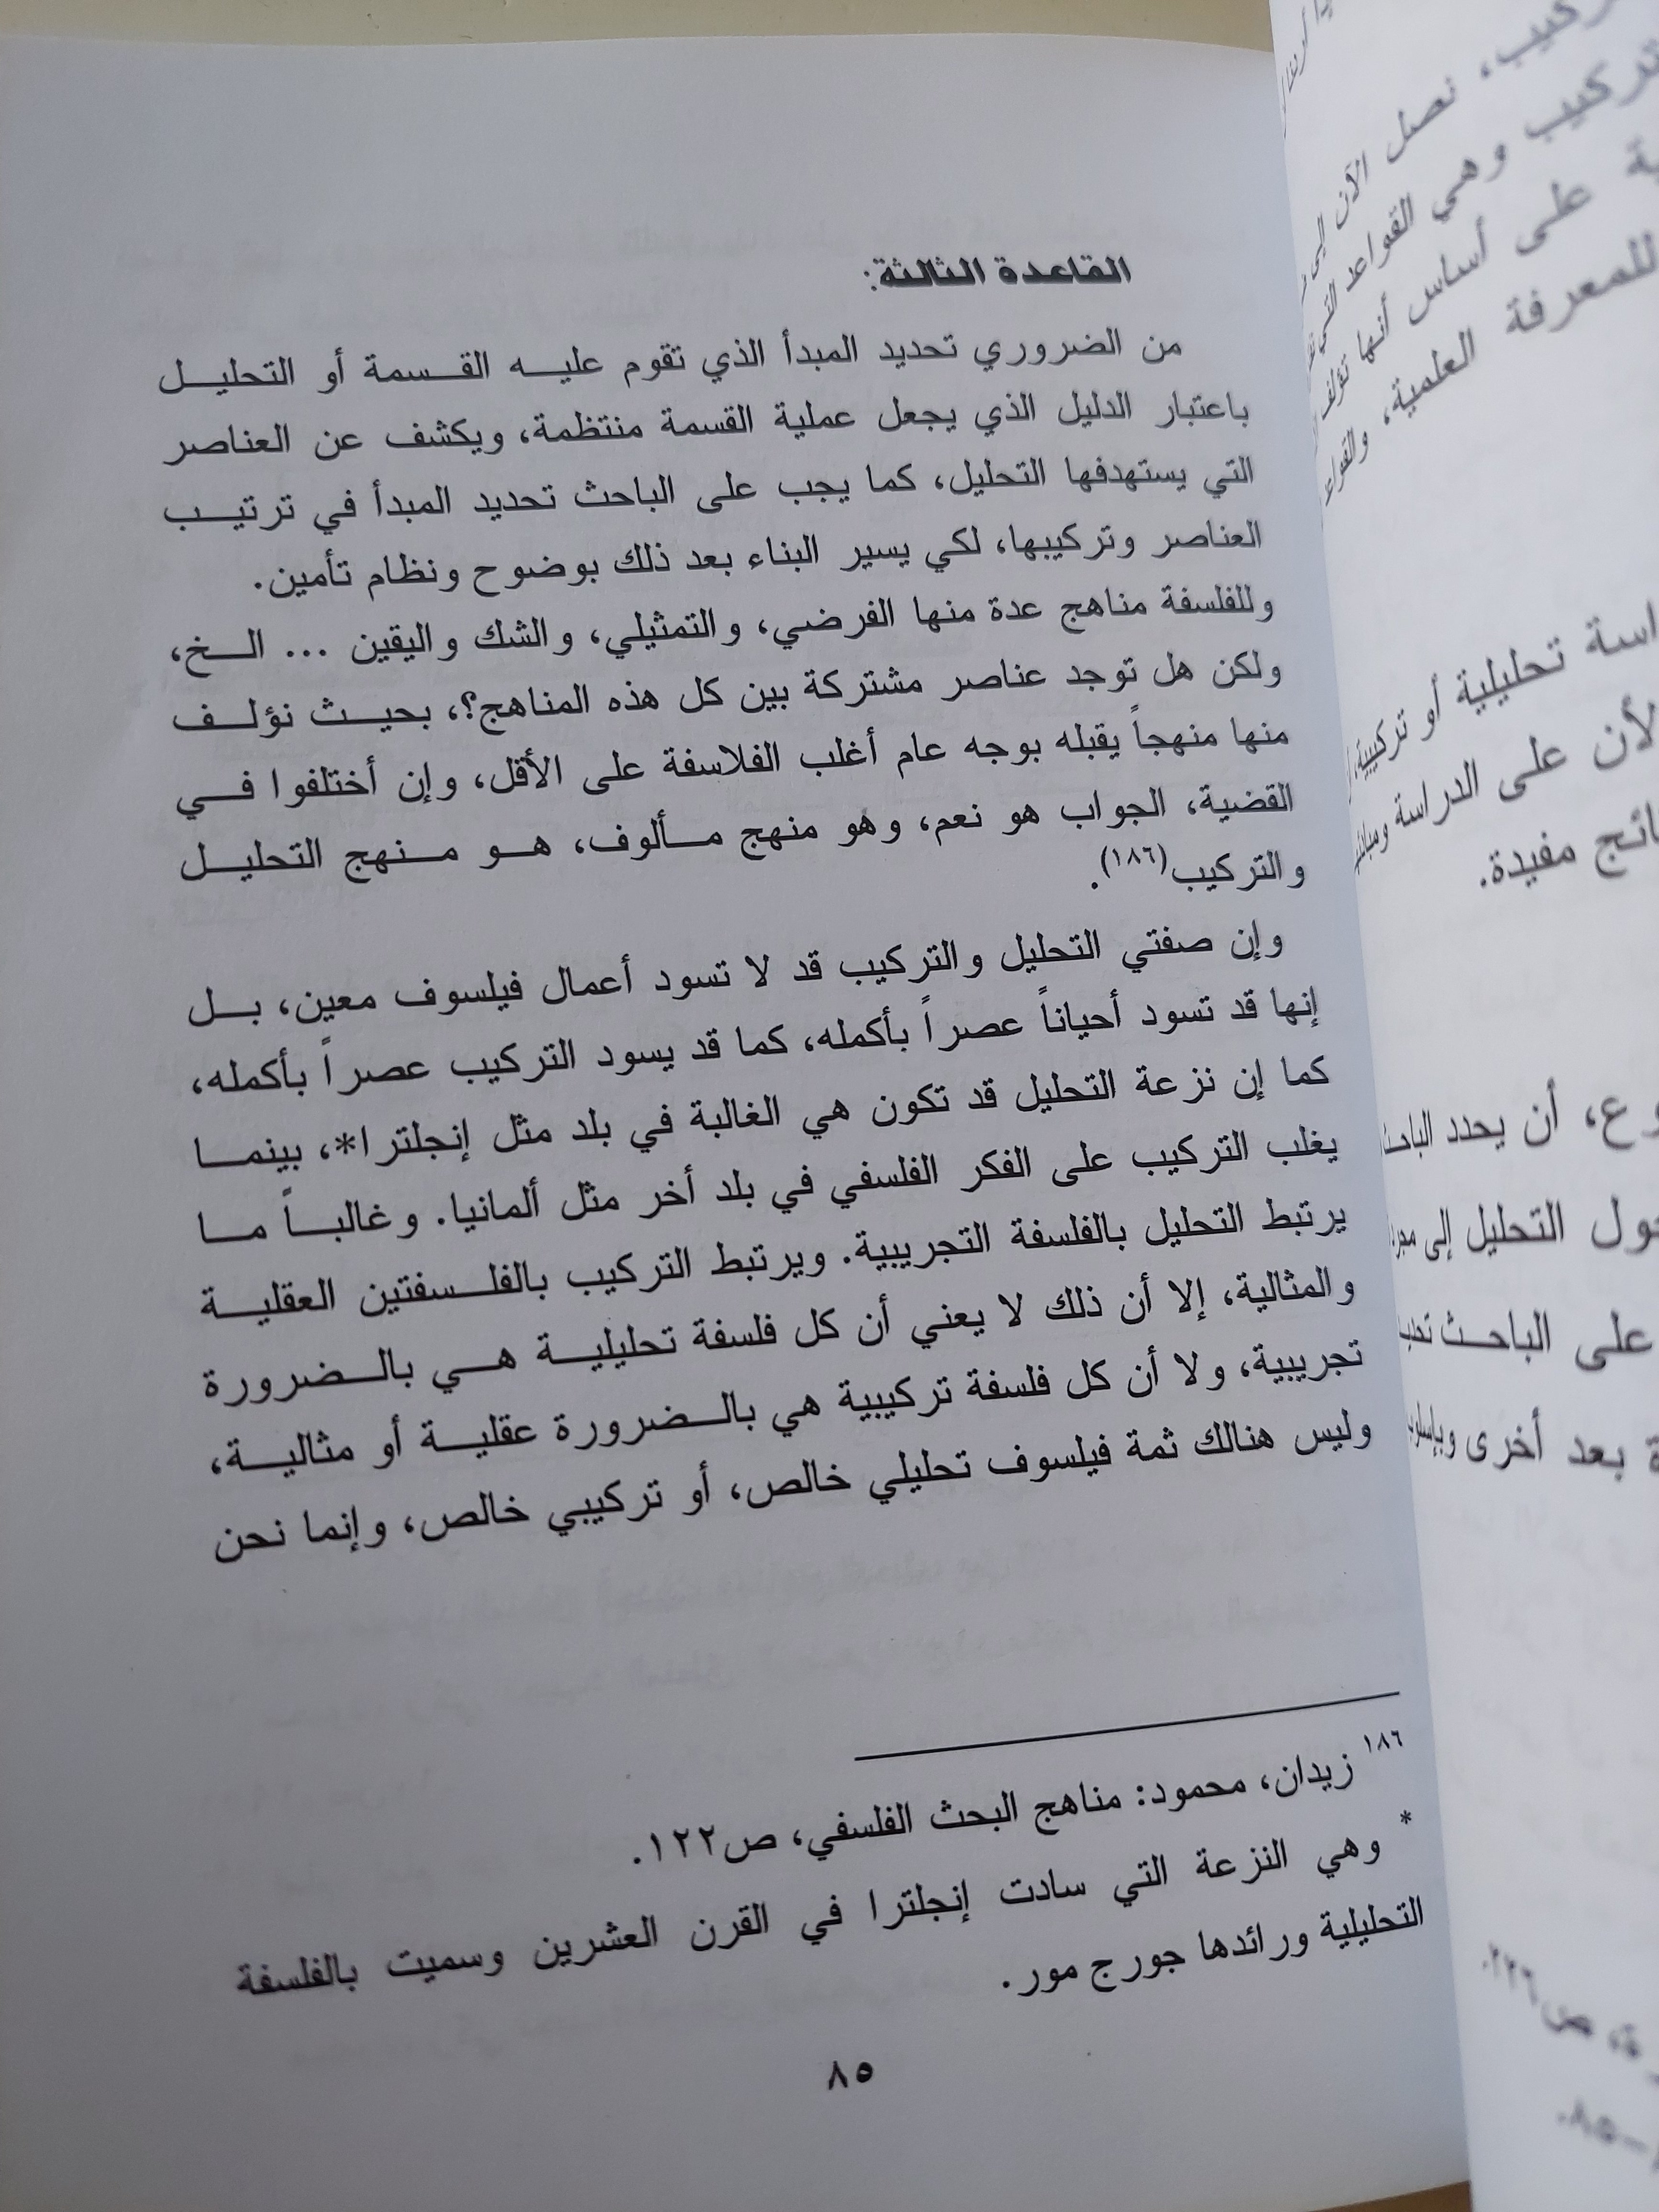 القاعدة الثالثة:
من الضروري تحديد المبدأ الذي تقوم عليه القسمة أو التحليل
باعتبار الدليل الذي يجعل عملية القسمة منتظمة، ويكشف عن العناصر
التي يستهدفها التحليل، كما يجب على الباحث تحديد المبدأ في ترتيب
العناصر وتركيبها، لكي يسير البناء بعد ذلك بوضوح ونظام تأمين.
وللفلسفة مناهج عدة منها الفرضي، والتمثيلي، والشك واليقين ... الخ،
ولكن هل توجد عناصر مشتركة بين كل هذه المناهج؟، بحيث نؤلف
منها منهجاً يقبله بوجه عام أغلب الفلاسفة على الأقل، وإن أختلفوا في
القضية، الجواب هو نعم، وهو منهج مألوف، هو منهج التحليل
والتركيب(١٨٦).
وإن صفتي التحليل والتركيب قد لا تسود أعمال فيلسوف معين، بل
إنها قد تسود أحياناً عصراً بأكمله، كما قد يسود التركيب عصراً بأكمله،
كما إن نزعة التحليل قد تكون هي الغالبة في بلد مثل إنجلترا*، بينما
يغلب التركيب على الفكر الفلسفي في بلد أخر مثل ألمانيا. وغالباً ما
يرتبط التحليل بالفلسفة التجريبية. ويرتبط التركيب بالفلسفتين العقلية
والمثالية، إلا أن ذلك لا يعني أن كل فلسفة تحليلية هي بالضرورة
تجريبية، ولا أن كل فلسفة تركيبية هي بالضرورة عقلية أو مثالية،
وليس هنالك ثمة فيلسوف تحليلي خالص، أو تركيبي خالص، وإنما نحن
١٨٦ زيدان، محمود: مناهج البحث الفلسفي، ص١٢٢.
* وهي النزعة التي سادت إنجلترا في القرن العشرين وسميت بالفلسفة
التحليلية ورائدها جورج مور.
٨٥
نصل الآن إلى
تركيب وهي القواعد التي
على أساس أنها تؤلف
للمعرفة العلمية، والقواعد
تحليلية أو تركيبية
على الدراسة
مفيدة.
أن يحدد الباحث
التحليل إلى
على الباحث
بعد أخرى
ص٢٢٦.